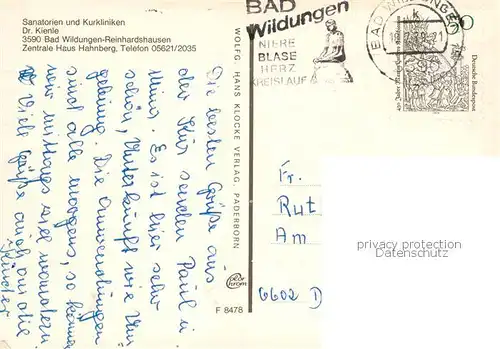 Sanatorien und Kurkliniken
Dr. Kienle
3590 Bad Wildungen-Reinhardshausen
Zentrale Haus Hahnberg, Telefon 05621/2035
Die besten Grüße aus
der Kur senden Paul u.
Mina. Es ist hier sehr
schön, Unterkunft wie
gelung. Die Anwendungen
sind alle morgens, so können
wir mittags viel wandern
Viele Grüße auch an die
Kinder
WOLFG. HANS KLOCKE VERLAG, PADERBORN
color chrom
F 8478
BAD
Wildungen
NIERE
BLASE
HERZ
KREISLAUF
BAD WILDUNGEN
k
Deutsche Bundespost
Fr.
Rut
Am
6602 D
privacy protection
Datenschutz